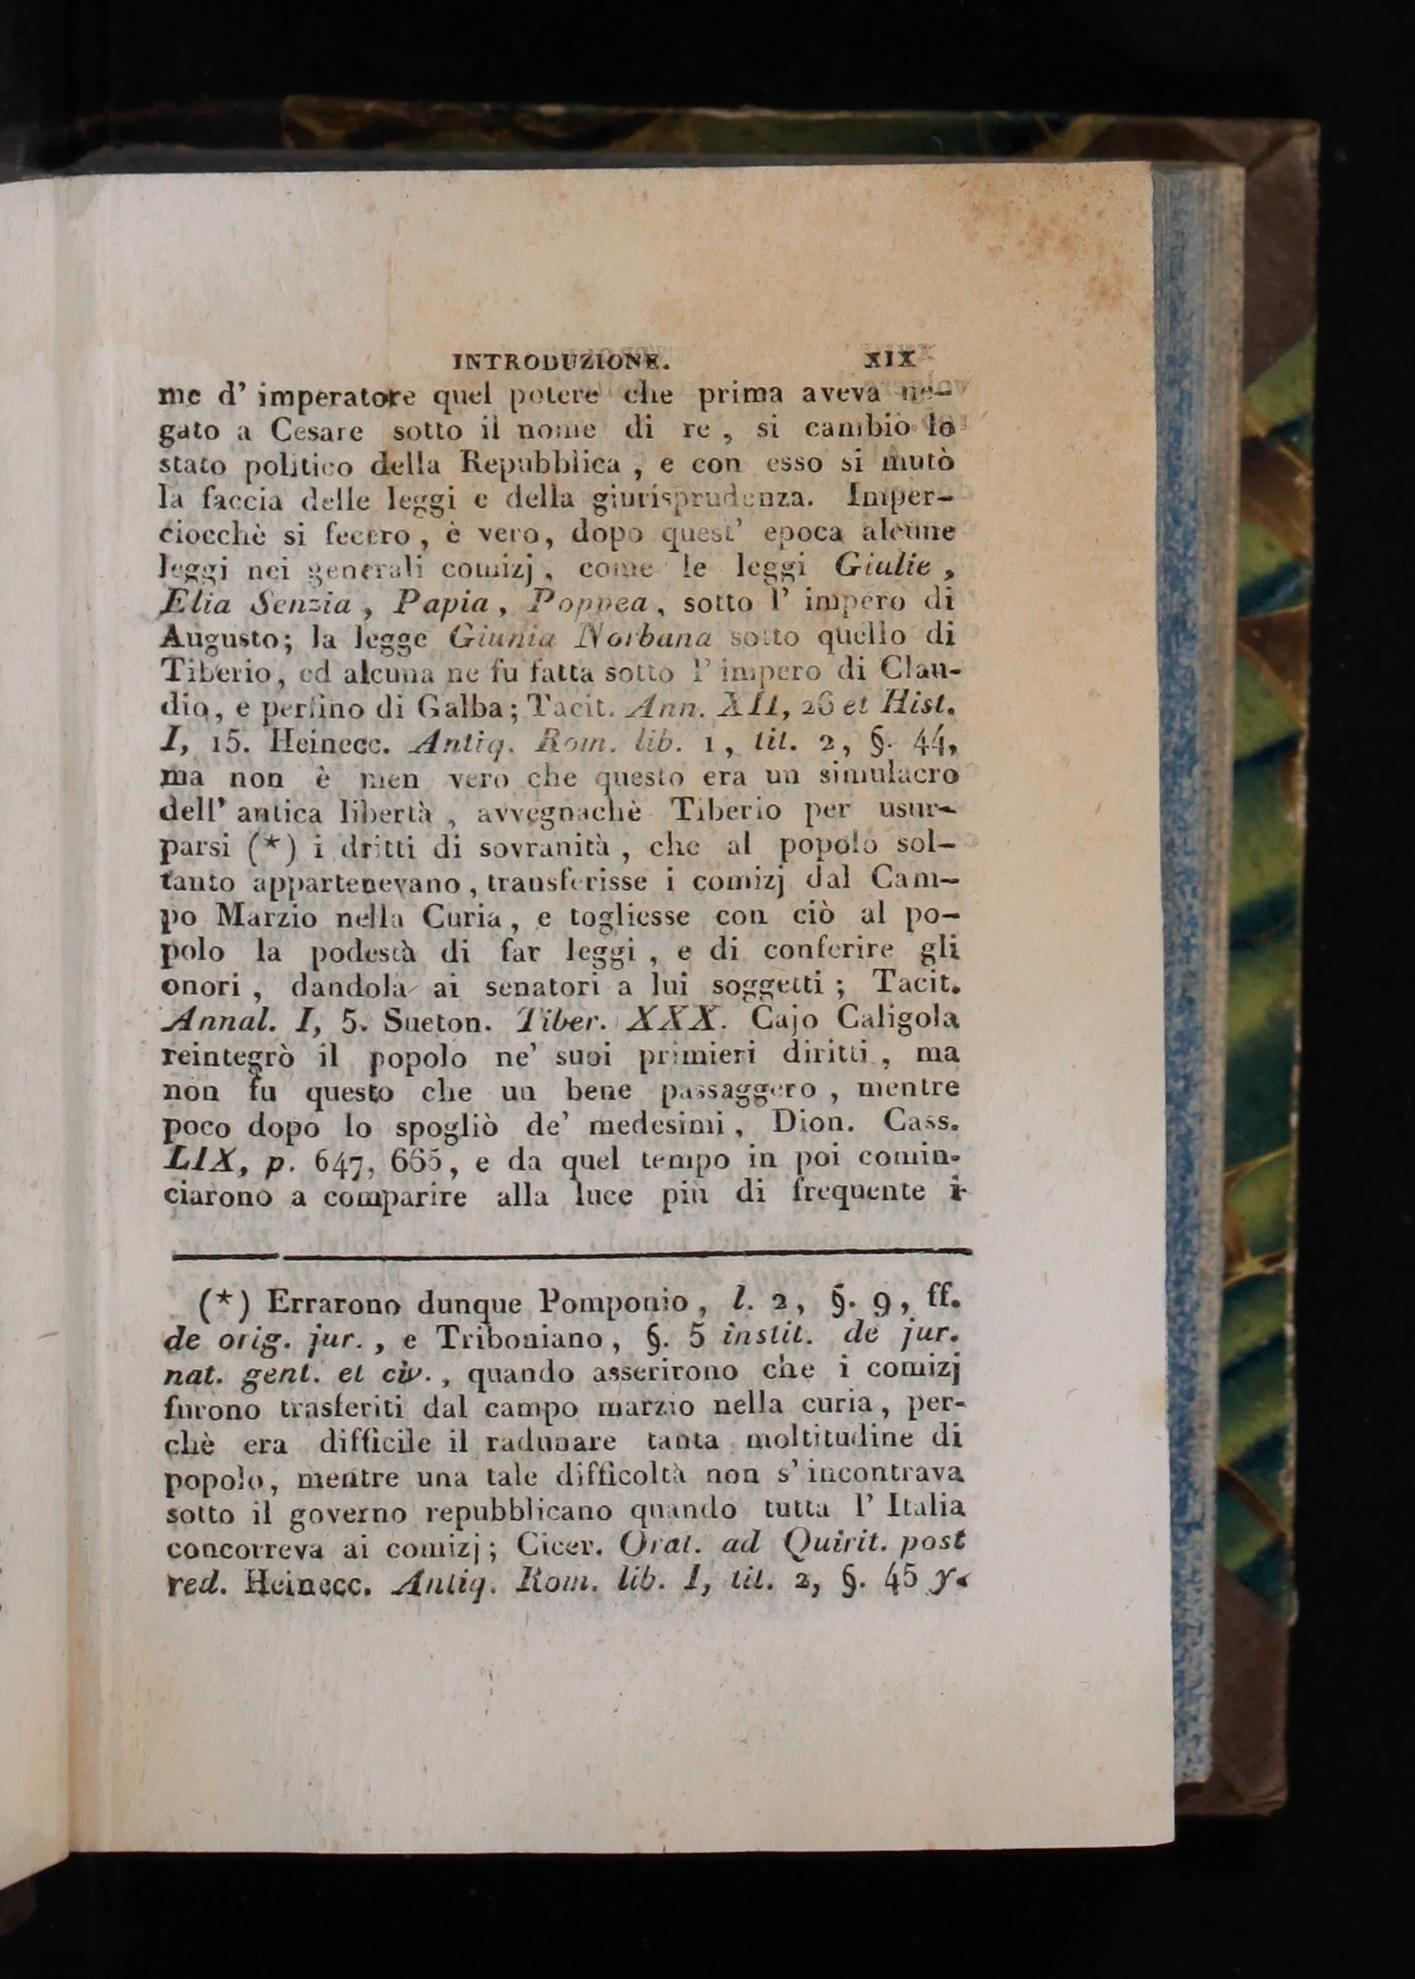 INTRODUZIONE. XIX
me d' imperatore quel potere che prima aveva ne-
gato a Cesare sotto il nome di re , si cambiò lo
stato politico della Repubblica , e con esso si mutò
la faccia delle leggi e della giurisprudenza. Imper-
ciocchè si fecero , è vero, dopo quest' epoca alcune
leggi nei generali comizj , come le leggi Giulie ,
Elia Senzia , Papia , Poppea , sotto l' impero di
Augusto; la legge Giunia Norbana sotto quello di
Tiberio, ed alcuna ne fu fatta sotto l' impero di Clau-
dio, e perfino di Galba; Tacit. Ann. XII, 26 et Hist.
I, 15. Heinecc. Antiq. Rom. lib. 1, tit. 2, §. 44,
ma non è men vero che questo era un simulacro
dell' antica libertà , avvegnachè Tiberio per usur-
parsi (*) i dritti di sovranità , che al popolo sol-
tanto appartenevano , transferisse i comizj dal Cam-
po Marzio nella Curia , e togliesse con ciò al po-
polo la podestà di far leggi , e di conferire gli
onori , dandola ai senatori a lui soggetti ; Tacit.
Annal. I, 5. Sueton. Tiber. XXX. Cajo Caligola
reintegrò il popolo ne' suoi primieri diritti , ma
non fu questo che un bene passaggero , mentre
poco dopo lo spogliò de' medesimi , Dion. Cass.
LIX, p. 647, 665, e da quel tempo in poi comin-
ciarono a comparire alla luce più di frequente i
(*) Errarono dunque Pomponio , l. 2, §. 9, ff.
de orig. jur. , e Triboniano , §. 5 instit. de jur.
nat. gent. et civ. , quando asserirono che i comizj
furono trasferiti dal campo marzio nella curia , per-
chè era difficile il radunare tanta moltitudine di
popolo, mentre una tale difficoltà non s' incontrava
sotto il governo repubblicano quando tutta l' Italia
concorreva ai comizj ; Cicer. Orat. ad Quirit. post
red. Heinecc. Antiq. Rom. lib. I, tit. 2, §. 45 y.